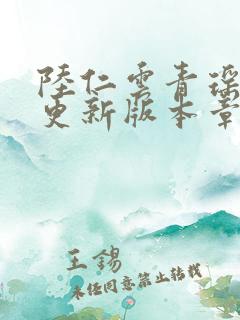 陸仁雲青瑶
更新版本章
王錫
未经同意禁止转载